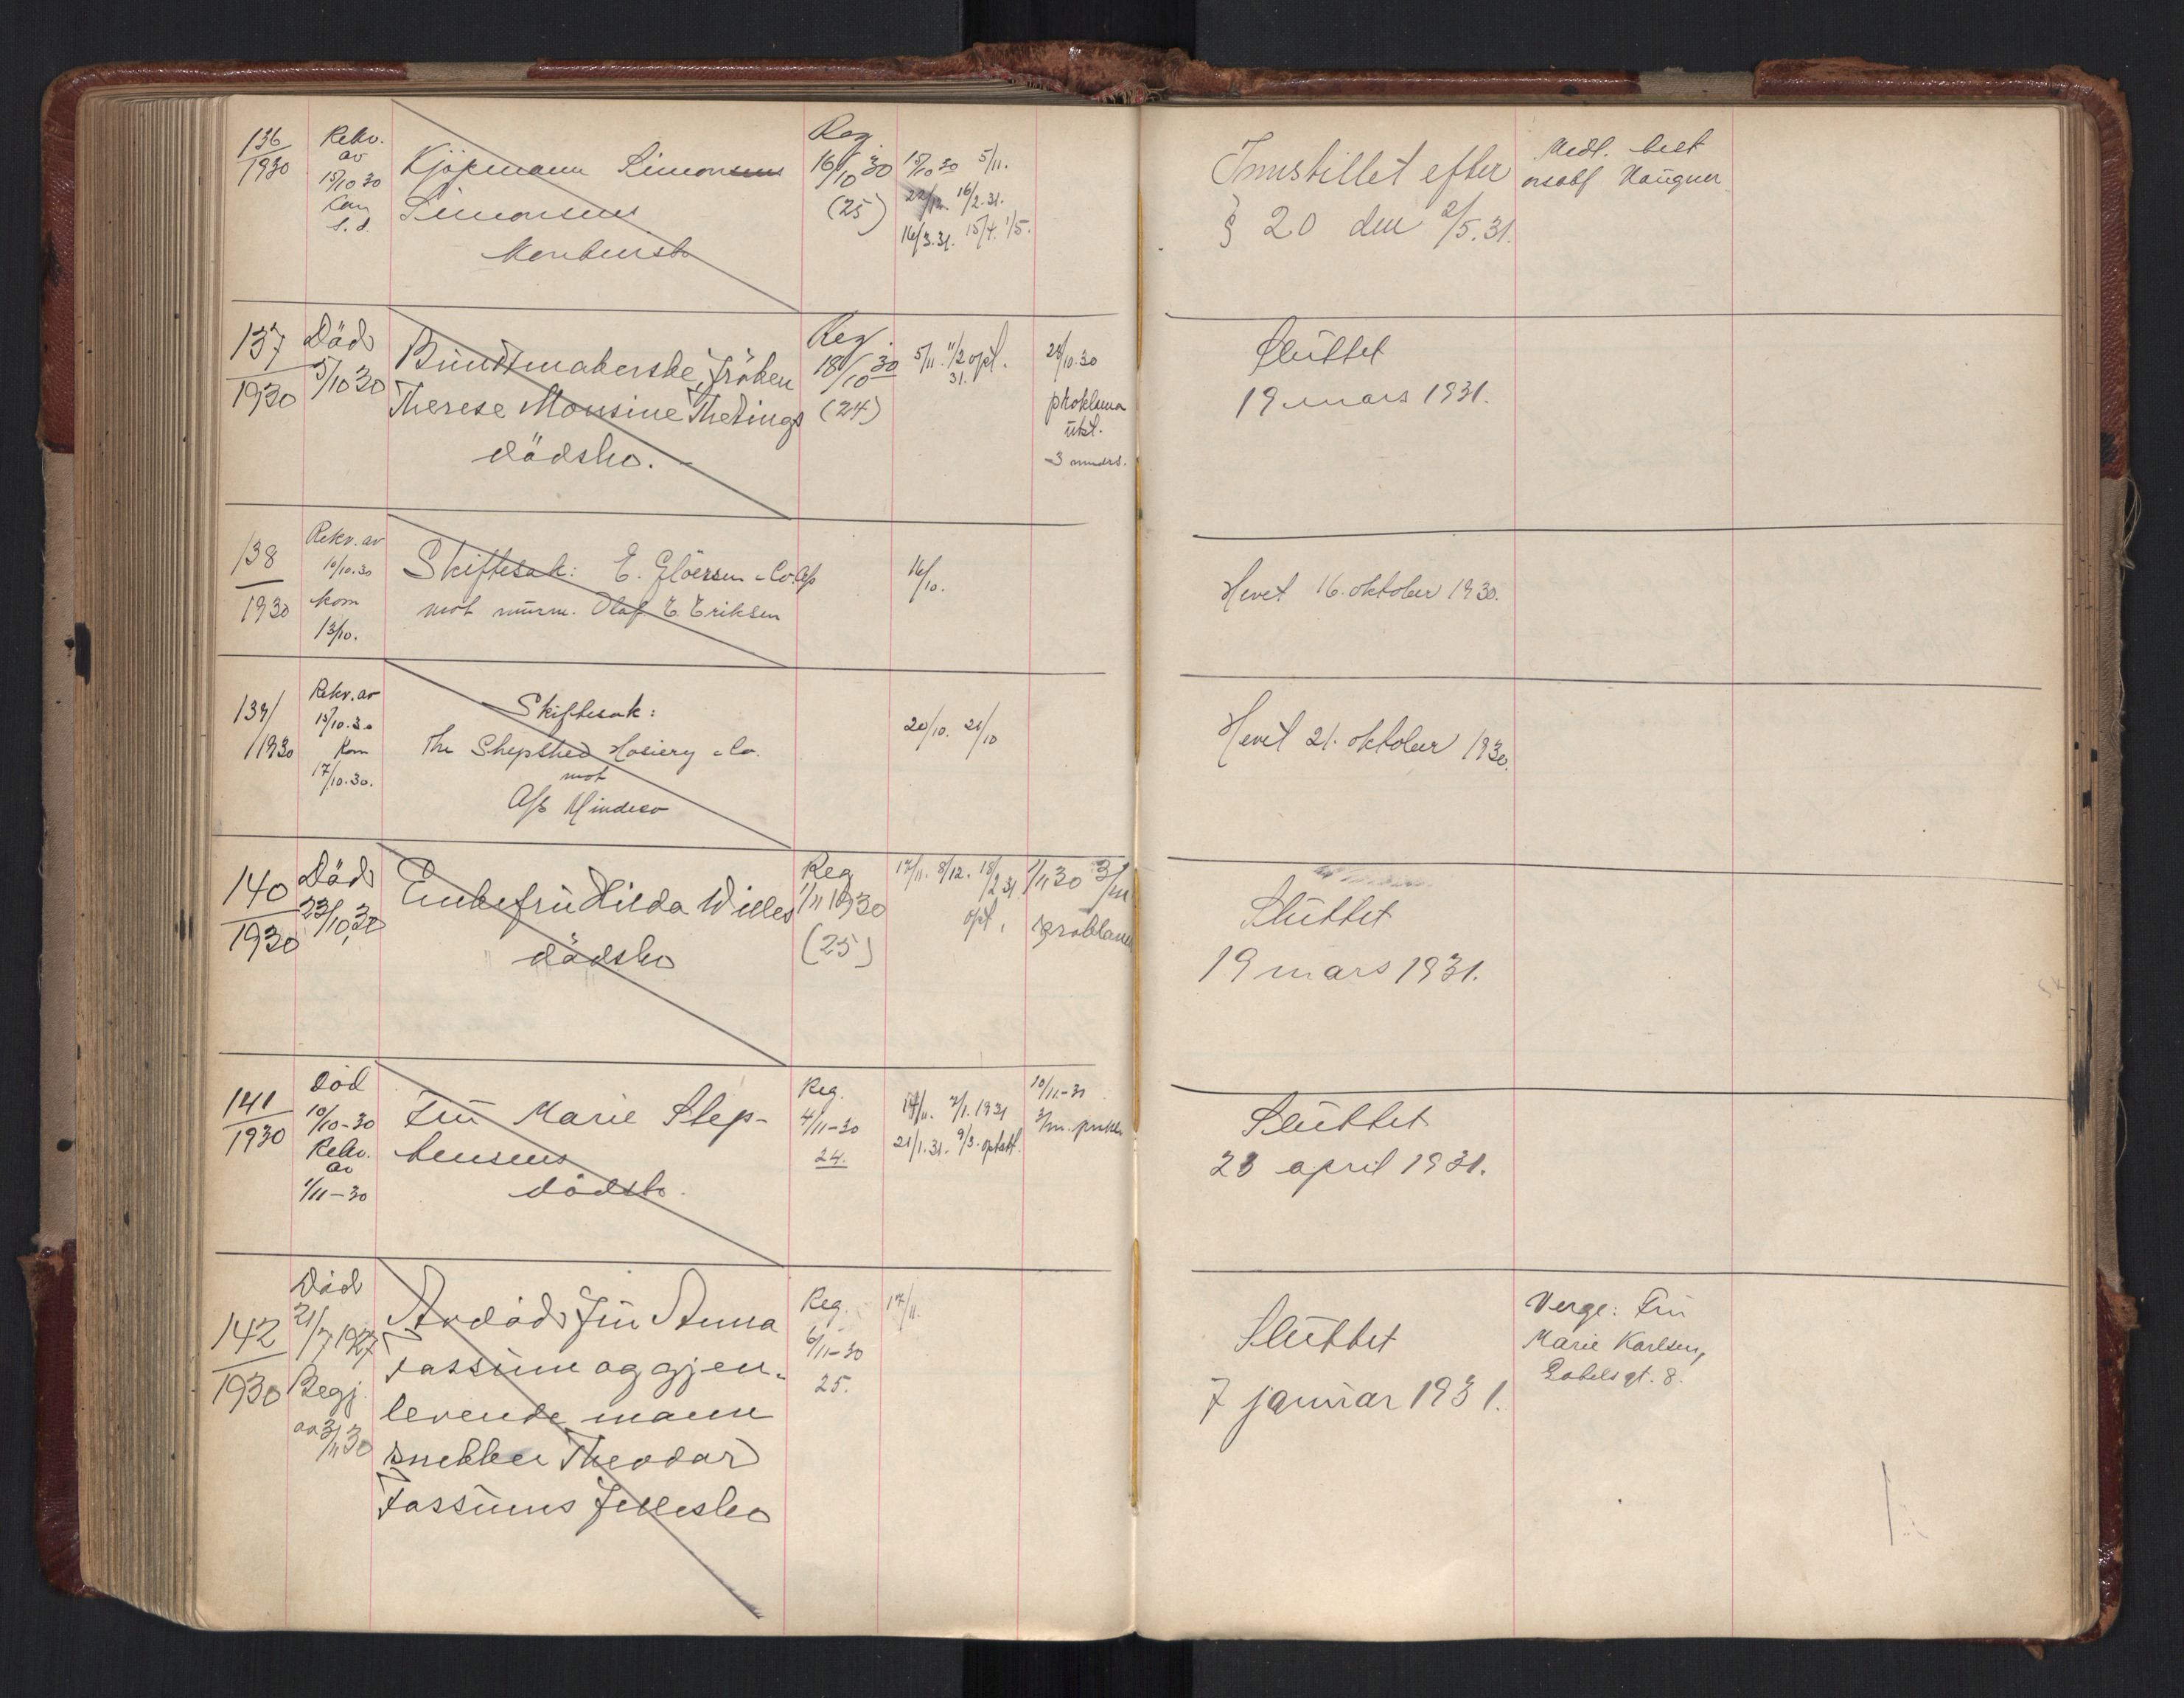 136
1930
Rekv.
av
15/10 30
kom
s. d.
Kjøpmann Simon
Simonsens
konkursbo
Reg.
16/10 30
(25)
15/10 30 5/11.
22/12. 16/2.31.
16/3.31. 15/4. 1/5.
Innstillet efter
§ 20 den 2/5.31.
Midl. best
orsabf Haugner
137
1930
Död
5/10 30
Buntmakerske, fröken
Therese Monsine Thetings
dödsbo.
Reg.
18/10 30
(24)
5/11. 11/2 opt.
31.
24/10.30
proklama
utst.
3 mndrs.
Sluttet
19 mars 1931.
138
1930
Rekv. av
10/10.30
kom
13/10.
Skiftesak: E. Glöersen & Co. A/s
mot murm. Olaf E. Eriksen
16/10.
Hevet 16. oktober 1930.
139/
1930
Rekv. av
15/10.30
Kom
17/10.30.
Skiftesak:
The Shepshed Hosiery & Co.
mot
A/s Mindeco
20/10. 21/10
Hevet 21. oktober 1930.
140
1930
Död
23/10 30
Enkefru Hilda Willes
dödsbo
Reg
1/11 1930
(25)
17/11. 8/12. 18/2 31
opt.
1/11 30 3/m
proklama
Sluttet
19 mars 1931.
141
1930
Död
10/10-30
Rekv.
av
1/11-30
Fru Marie Step-
hensens
dödsbo.
Reg.
4/11-30
24.
17/11. 7/1.1931
21/1.31. 9/3. optatt.
10/11.-30
3/m. prokl.
Sluttet
28 april 1931.
142
1930
Död
21/7 1927
Begj.
av 3/11 30
Avdöde Fru Anna
Fassum og gjen-
levende mann
snekker Theodor
Fassums fellesbo
Reg.
6/11-30
25.
17/11.
Sluttet
7 januar 1931.
Verge: Fru
Marie Karlsen,
Gabelsgt. 8.